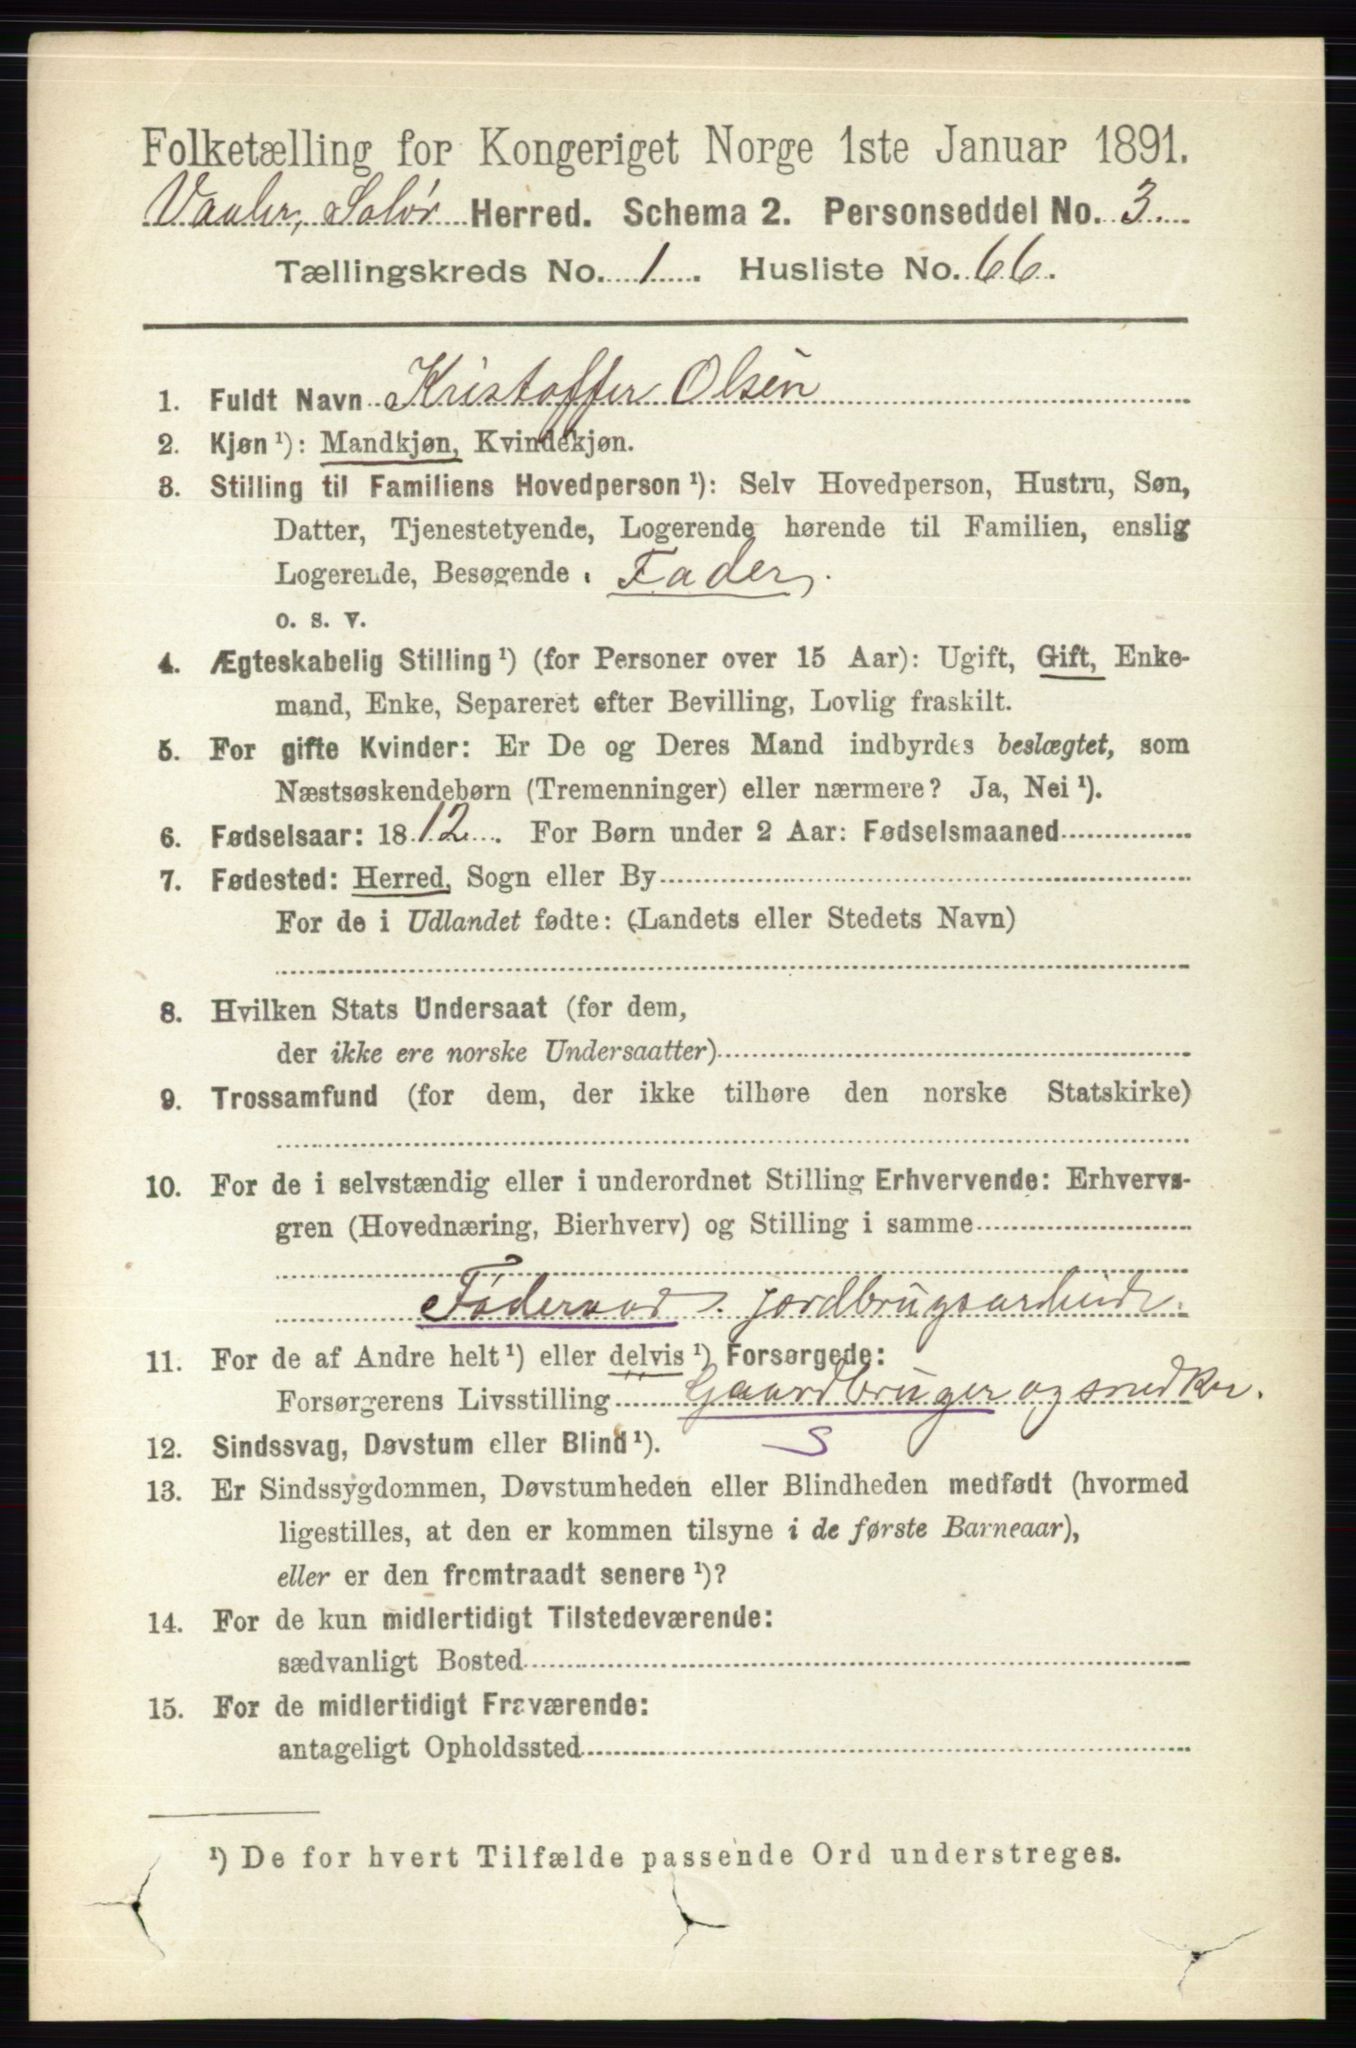 Folketælling for Kongeriget Norge 1ste Januar 1891.
Vaaler, Solør Herred. Schema 2. Personseddel No. 3.
Tællingskreds No. 1. Husliste No. 66.
1. Fuldt Navn Kristoffer Olsen
2. Kjøn¹): Mandkjøn, Kvindekjøn.
3. Stilling til Familiens Hovedperson¹): Selv Hovedperson, Hustru, Søn,
Datter, Tjenestetyende, Logerende hørende til Familien, enslig
Logerende, Besøgende . Fader.
o. s. v.
4. Ægteskabelig Stilling¹) (for Personer over 15 Aar): Ugift, Gift, Enke-
mand, Enke, Separeret efter Bevilling, Lovlig fraskilt.
5. For gifte Kvinder: Er De og Deres Mand indbyrdes beslægtet, som
Næstsøskendebørn (Tremenninger) eller nærmere? Ja, Nei¹).
6. Fødselsaar: 1812. For Børn under 2 Aar: Fødselsmaaned
7. Fødested: Herred, Sogn eller By
For de i Udlandet fødte: (Landets eller Stedets Navn)
8. Hvilken Stats Undersaat (for dem,
der ikke ere norske Undersaatter)
9. Trossamfund (for dem, der ikke tilhøre den norske Statskirke)
10. For de i selvstændig eller i underordnet Stilling Erhvervende: Erhvervs-
gren (Hovednæring, Bierhverv) og Stilling i samme
Føderaad. jordbrugsarbeide.
11. For de af Andre helt¹) eller delvis¹) Forsørgede:
Forsørgerens Livsstilling Gaardbruger og snedker.
12. Sindssvag, Døvstum eller Blind¹). S
13. Er Sindssygdommen, Døvstumheden eller Blindheden medfødt (hvormed
ligestilles, at den er kommen tilsyne i de første Barneaar),
eller er den fremtraadt senere¹)?
14. For de kun midlertidigt Tilstedeværende:
sædvanligt Bosted
15. For de midlertidigt Fraværende:
antageligt Opholdssted
¹) De for hvert Tilfælde passende Ord understreges.